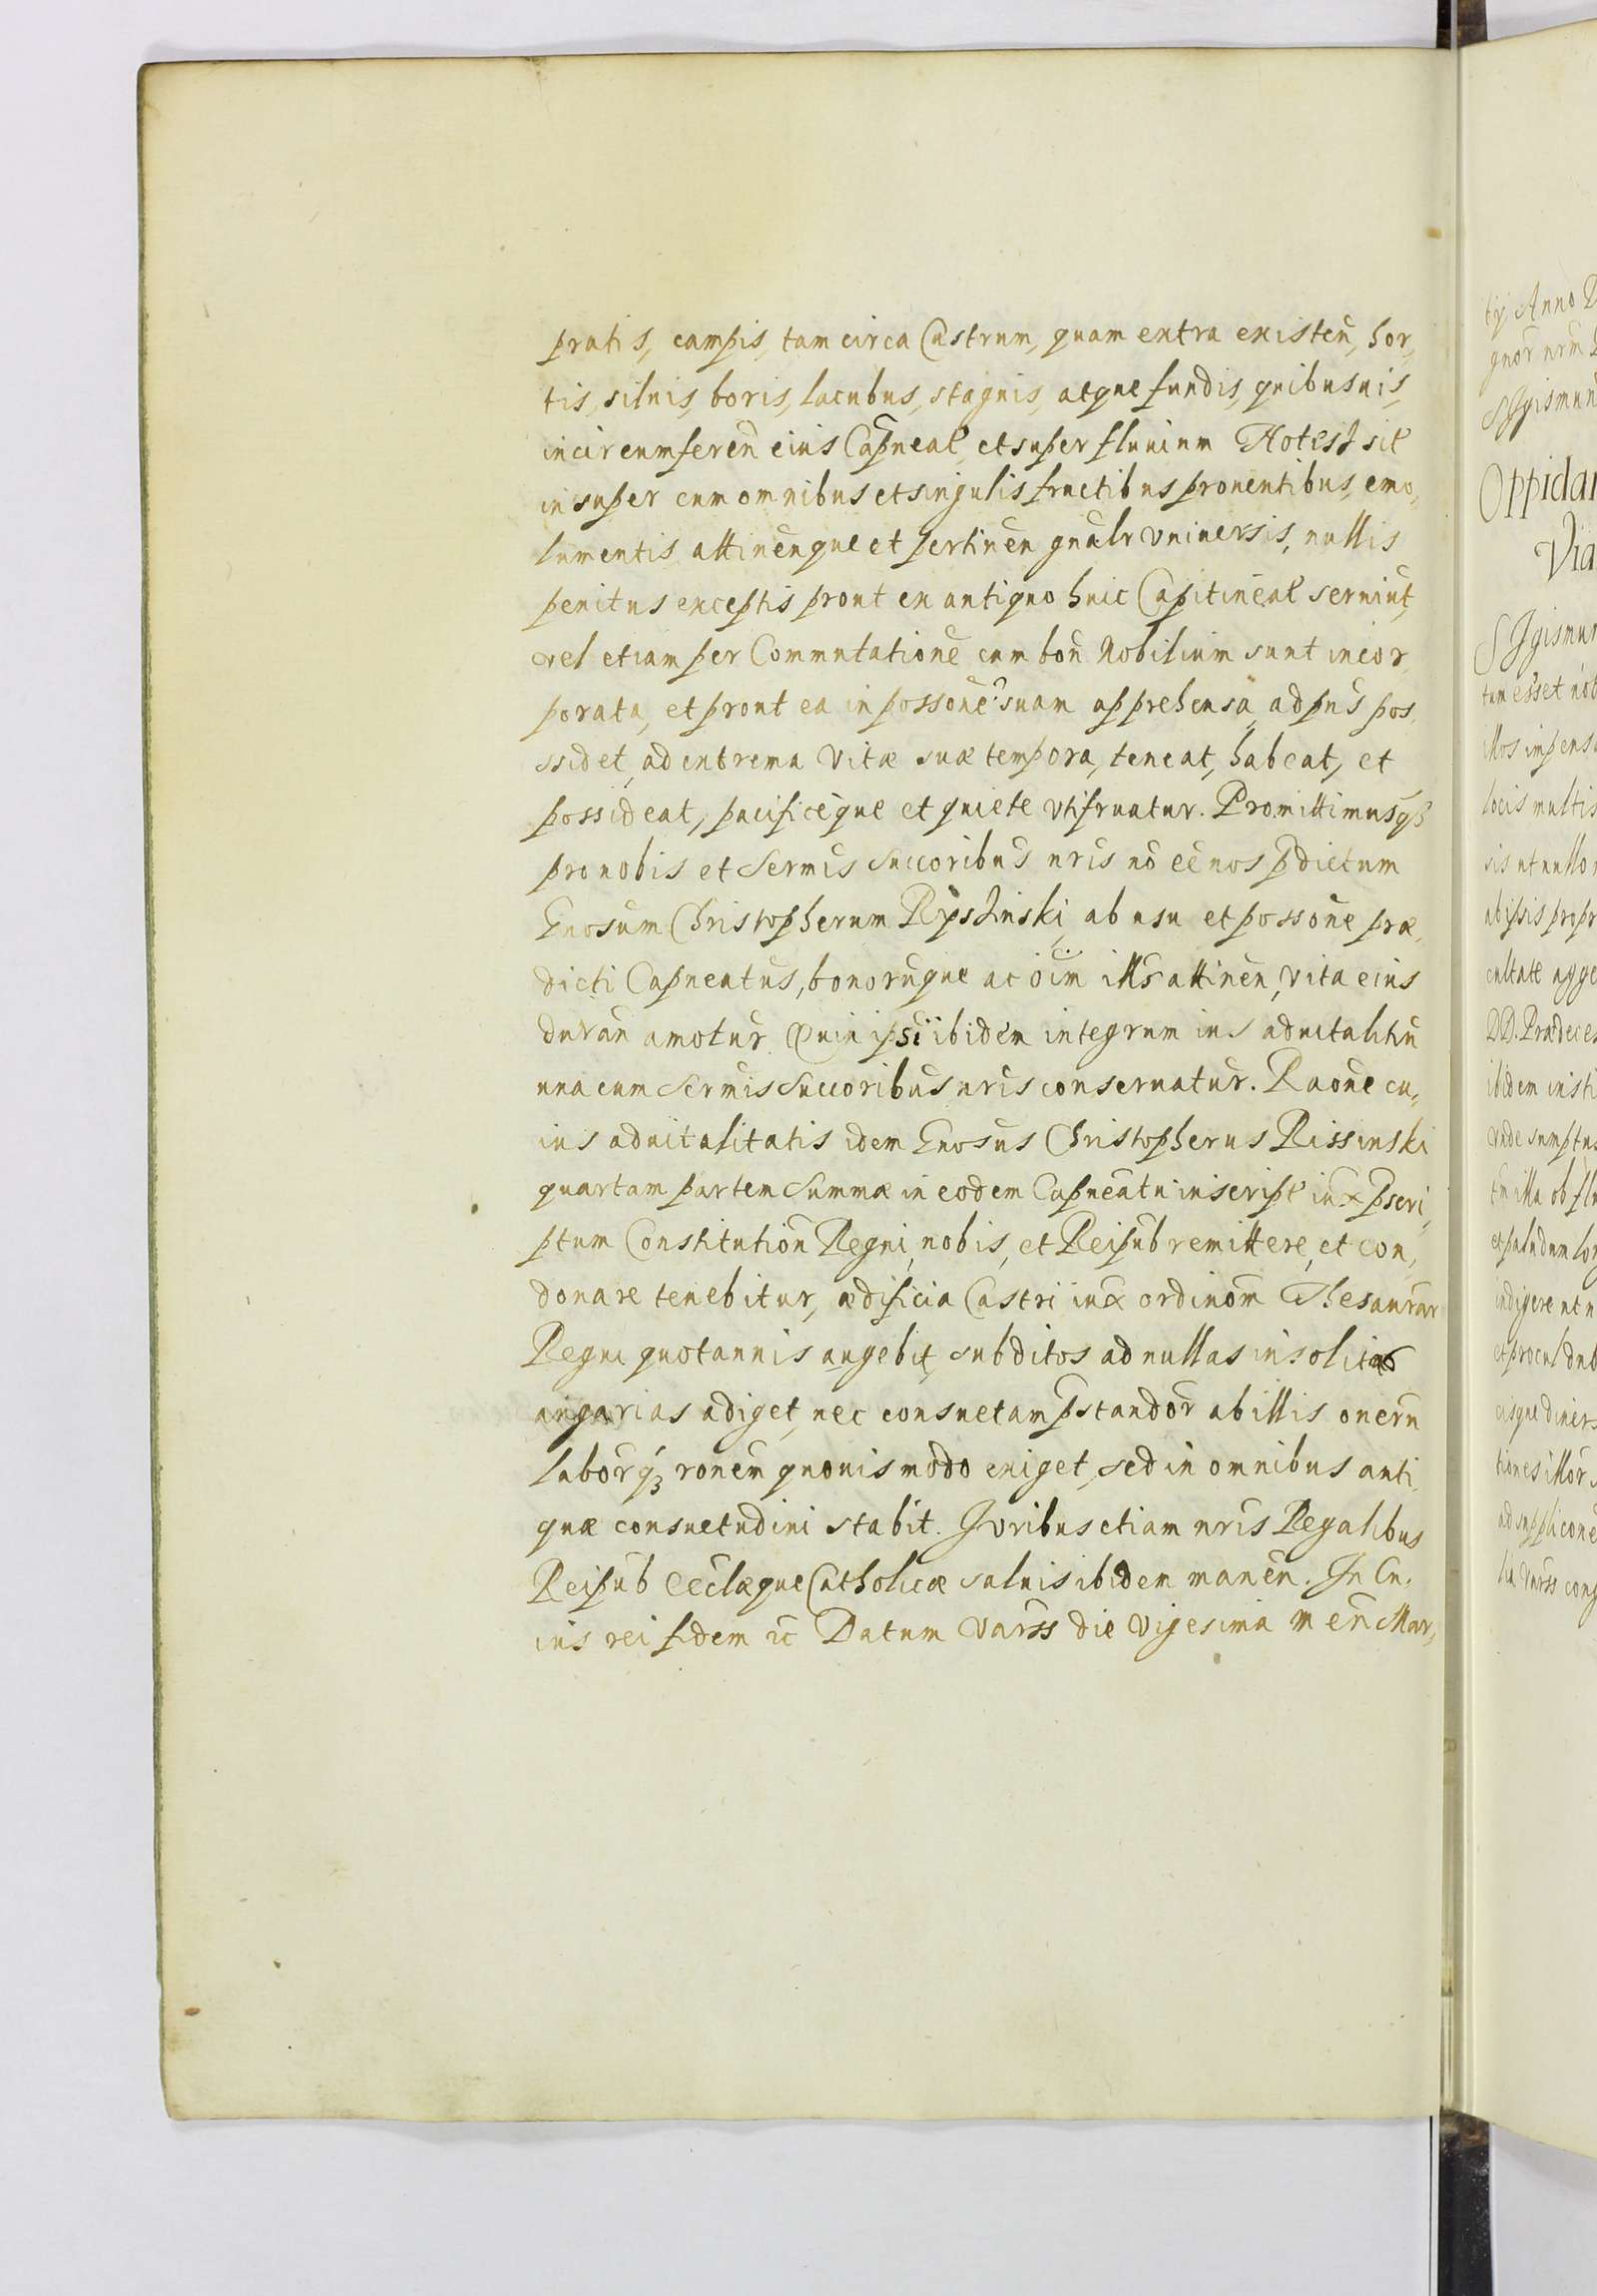 pratis, campis, tam circa Castrum, quam extra existeñ, hor,
tis, siluis, boris, lacubus, stagnis, atque fundis, quibusuis,
in circumfereñ eius Capñeal, et super fluuium Hotesz sit
insuper cum omnibus et singulis fructibus prouentibus, emo,
lumentis attineñque et pertineñ gñalr vniuersis, nullis
penitus exceptis prout ex antiquo huic Capitiñeal seruiũt,
vel etiam per Commutationẽ cum boñ Nobilium sunt incor,
porata, et prout ea in possoñe suam apprehensa, ad pñs pos,
ssidet, ad extrema vitæ suæ tempora, teneat, habeat, et
possideat, pacificèque et quiete vtifruatur. Promittimusq3
pro nobis et Sermis Succoribus ñris nõ eẽ nos p̃dictum
Gnosum Christopherum Rÿszinski, ab usu et possoñe præ,
dicti Capñeatus, bonorũque ac oĩm illis attineñ, vita eius
durañ amotur. Quin ipsi ibidem integrum ius aduitalitiũ
una cum Sermis Succoribus ñris conseruatur. Raoñe cu,
ius aduitalitatis idem Gnosus Christopherus Rissinski
quartam partem Summæ in eodem Capñeatu inscript iux̃ p̃scri,
ptum Constitutioñ Regni, nobis, et Reipub remittere, et con,
donare tenebitur, ædificia Castri iux̃ ordinoem Thesaurar
Regni quotannis augebit, subditos ad nullas insolitas
angarias adiget, nec consuetam p̃standor̃ ab illis onerũ
labor̃q3 roñem quouis modo exiget, sed in omnibus anti,
quæ consuetudini stabit. Juribus etiam ñris Regalibus
Reipub Eccl̃æque Catholicæ saluis ibidem maneñ. In Cu,
ius rei fidem ꝛc Datum Varss die Vigesima Meñ Mar,
tÿ Anno D
gnor ñrm
SIgismun
Oppidan
Via
SIgismun
tum esset not
illos impensa
locis multis
sis ut nullo
ab ipsis propr
cultate agge
DD. Prædeces
ibidem insti
vnde sumptus
tu illa ob flu
et paludum lon
indigere ut n
et procul dub
eisque diuers
tiones illor
ad supplicone
lia Varss cong